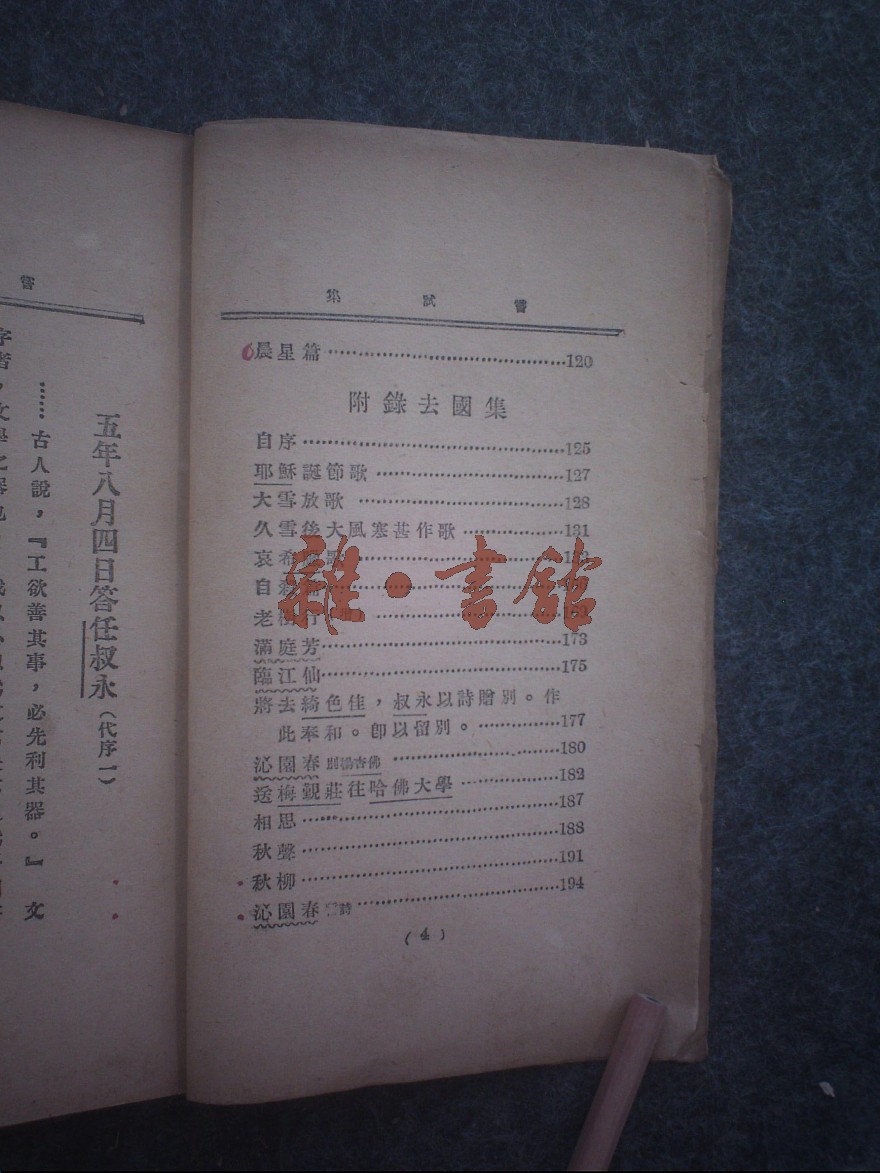 集試嘗
晨星篇……120
附錄去國集
自序……125
耶穌誕節歌……127
大雪放歌……128
久雪後大風寒甚作歌……131
哀希
自
老樹行
滿庭芳……173
臨江仙……175
將去綺色佳，叔永以詩贈別。作
此奉和。卽以留別。……177
沁園春 別楊杏佛……180
送梅覲莊往哈佛大學……182
相思……187
秋聲……188
秋柳……191
沁園春 誓詩……194
(4)
雜·書館
嘗
五年八月四日答任叔永（代序一）
……古人說，『工欲善其事，必先利其器。』文
字者，文學之器也